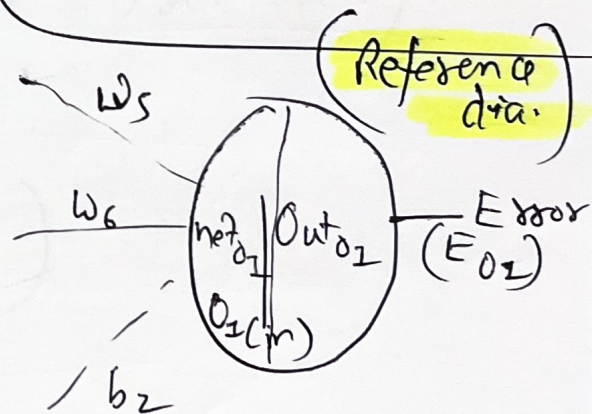 (Reference
dia.)
W5
W6
net O1 | Out O1
O1(in)
Error
(E O1)
b2